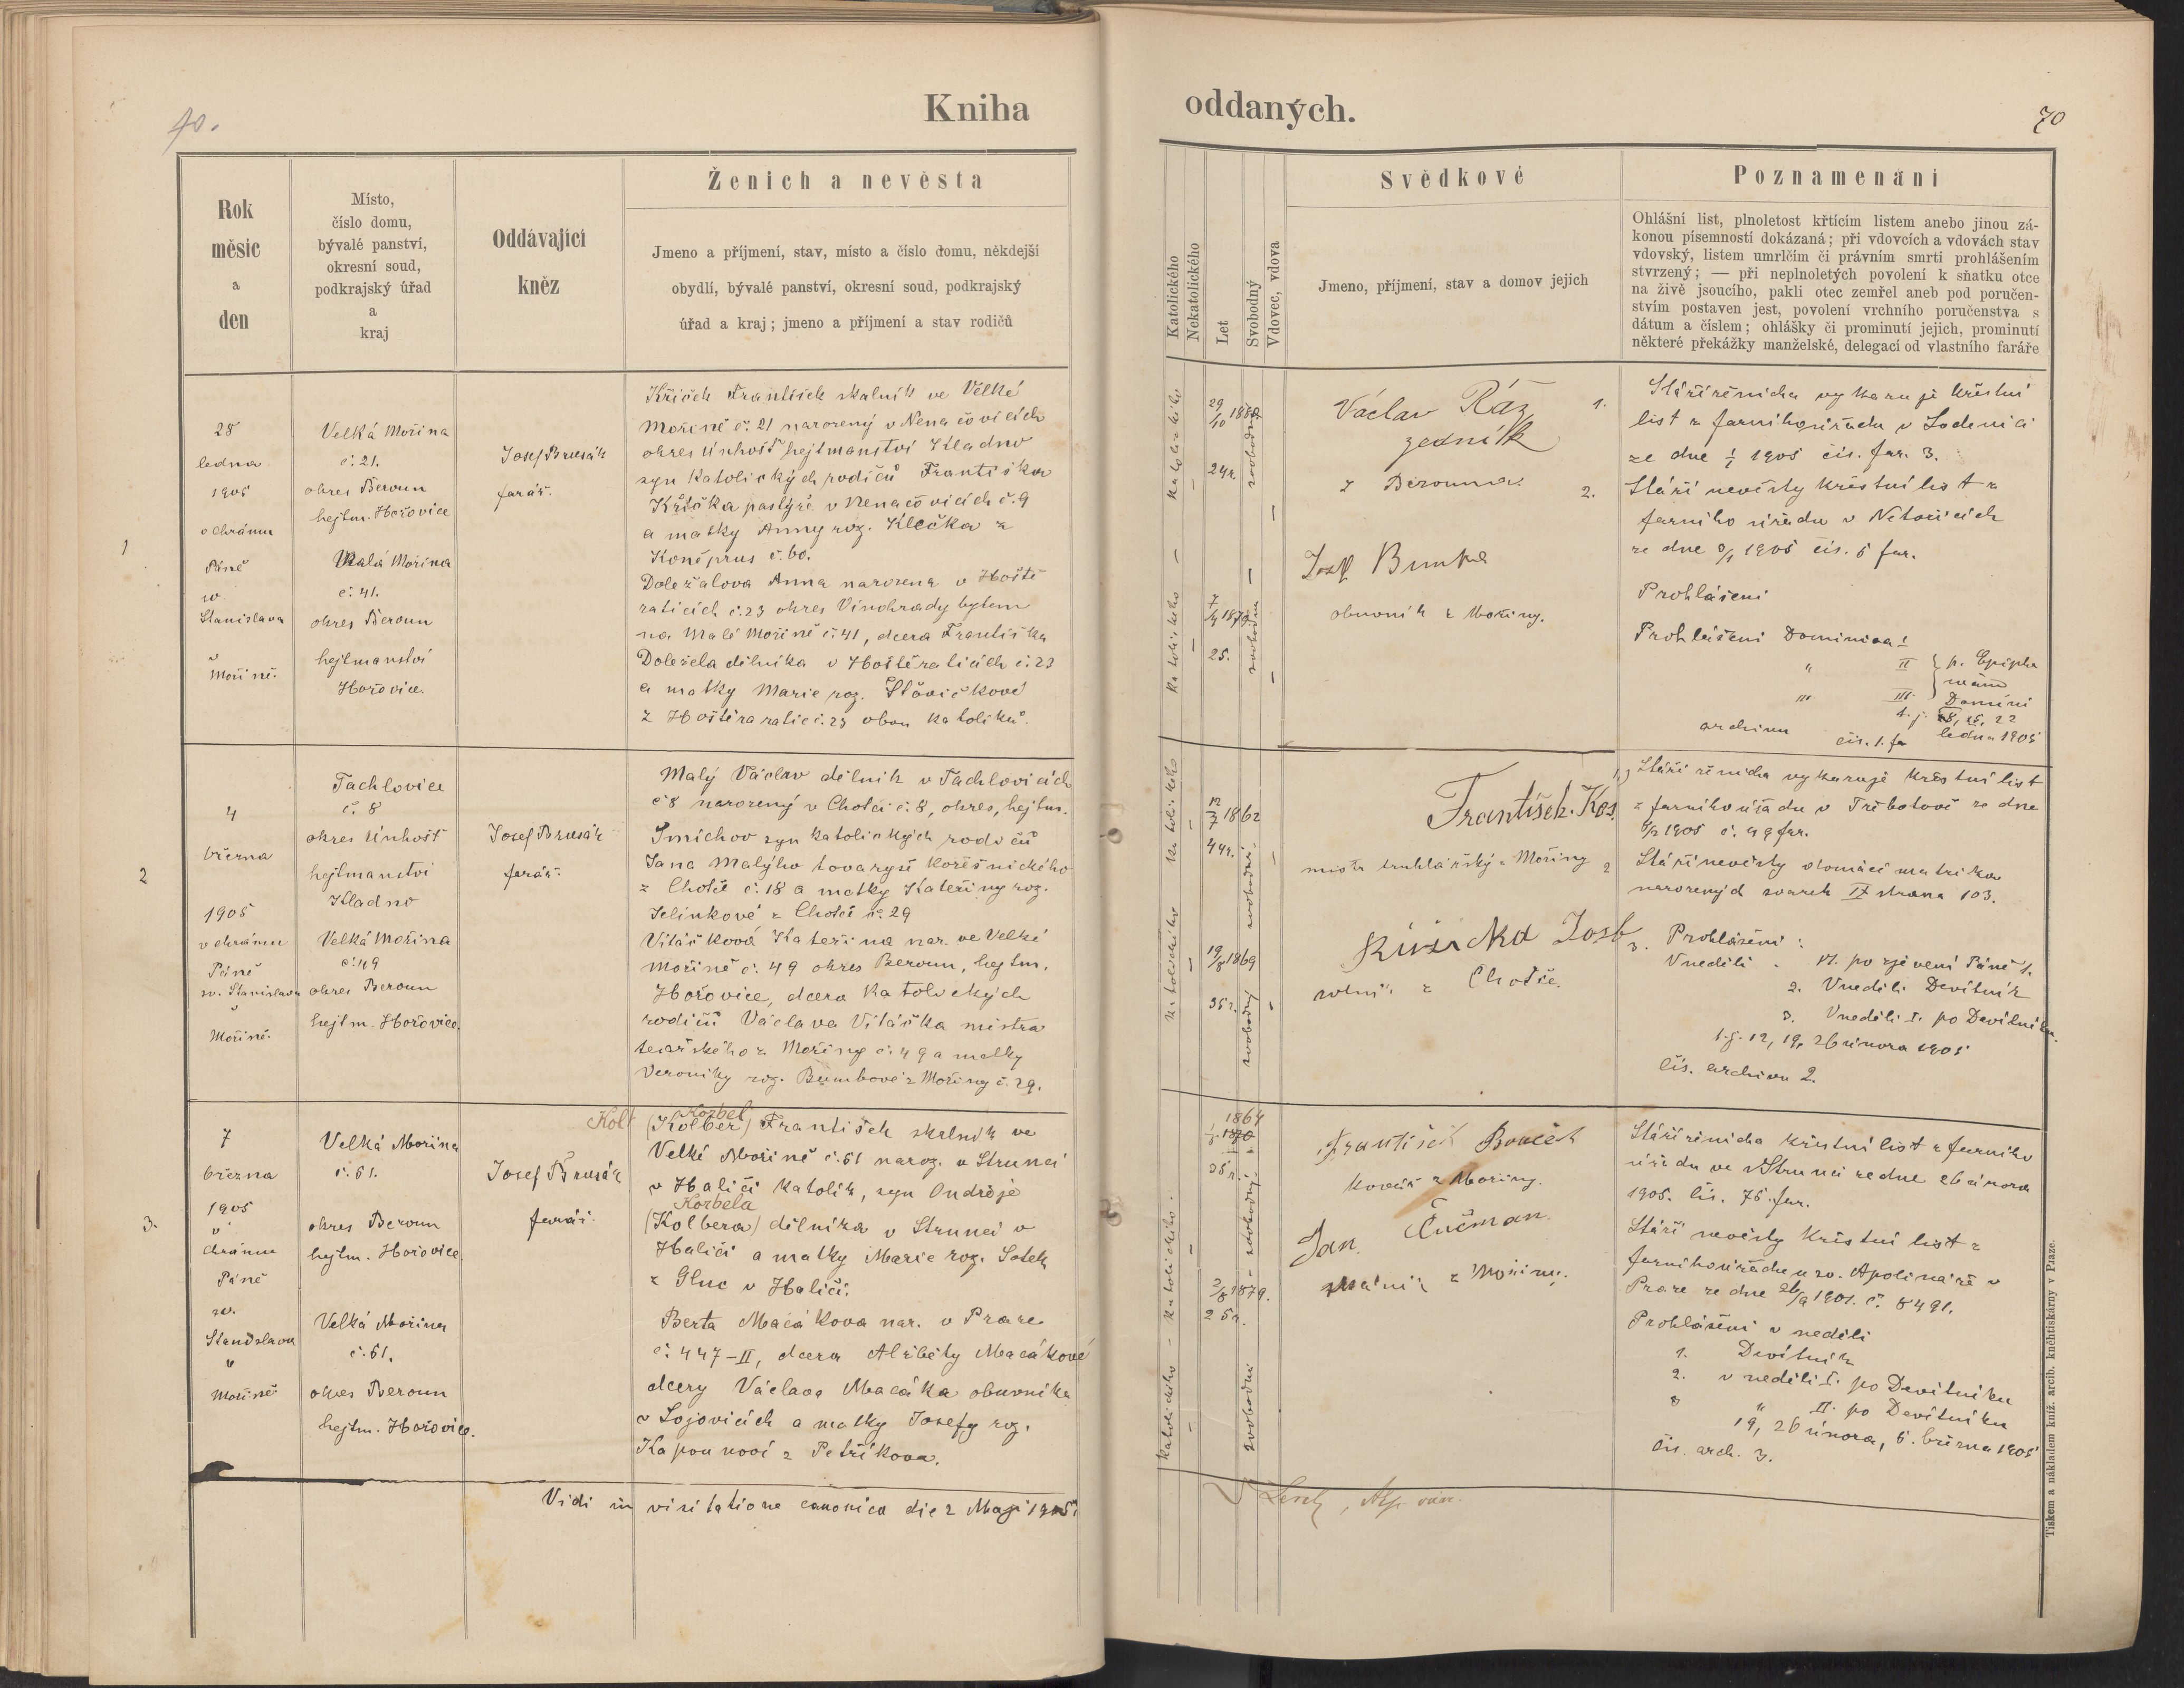 70.
Kniha
oddaných.
70
Rok
měsíc
a
den
Místo,
číslo domu,
bývalé panství,
okresní soud,
podkrajský úřad
a
kraj
Oddávající
kněz
Ženich a nevěsta
Jmeno a příjmení, stav, místo a číslo domu, někdejší
obydlí, bývalé panství, okresní soud, podkrajský
úřad a kraj; jmeno a příjmení a stav rodičů
Katolického
Nekatolického
Let
Svobodný
Vdovec, vdova
Svědkové
Jmeno, příjmení, stav a domov jejich
Poznamenání
Ohlášní list, plnoletost křtícím listem anebo jinou zá-
konou písemností dokázaná; při vdovcích a vdovách stav
vdovský, listem umrlčím či právním smrti prohlášením
stvrzený; — při neplnoletých povolení k sňatku otce
na živě jsoucího, pakli otec zemřel aneb pod poručen-
stvím postaven jest, povolení vrchního poručenstva s
dátum a číslem; ohlášky či prominutí jejich, prominutí
některé překážky manželské, delegací od vlastního faráře
1
28
ledna
1905
v chrámu
Páně
sv.
Stanislava
v
Mořině.
Velká Mořina
č. 21.
okres Beroun
hejtm. Hořovice
Malá Mořina
č. 41.
okres Beroun
hejtmanství
Hořovice.
Josef Brusák
farář.
Křiček František skalník ve Velké
Mořině č. 21 narozený v Nenačovicích
okres Únhošť hejtmanství Kladno
syn katolických rodičů Františka
Křička pastýře v Nenačovicích č. 9
a matky Anny roz. Klečka z
Koněprus č. 60.
Doležalova Anna narozena v Hoště
raticích č. 23 okres Vinohrady bytem
na Malé Mořině č. 41, dcera Františka
Doležela dělníka v Hoštěraticích č. 23
a matky Marie roz. Šťovíčkové
z Hoštěraratic č. 23 obou katolíků.
katolického
29/10 1880
24 r.
svobodný
katolického
7/4 1879
25.
svobodná
Václav Ráz
zedník
z Berouna.
Josef Bumba
obuvník z Mořiny.
1. Stáří ženicha vykazuje křestní
list z farního úřadu v Loděnici
ze dne 1/1 1905 čís. far. 3.
2. Stáří nevěsty křestní list z
farního úřadu v Netvořicích
ze dne 9/1 1905 čís. 5 far.
Prohlášeni
Prohlášení Dominica I
" II p. Epipha
niam
"' III. Domini
t. j. 8, 15, 22
ledna 1905
archivu čís. 1. fa
2
4
března
1905
v chrámu
Páně
sv. Stanislava
v
Mořině.
Tachlovice
č. 8
okres Únhošť
hejtmanství
Kladno
Velká Mořina
č. 49
okres Beroun
hejtm. Hořovice.
Josef Brusák
farář.
Malý Václav dělník v Tachlovicích
č 8 narozený v Chotči č. 8, okres, hejtm.
Smíchov syn katolických rodičů
Jana Malýho tovaryše kor̃ešnického
z Chotče č. 18 a matky Kateřiny roz.
Jelínkové z Chotči č. 29
Vitášková Kateřina nar. ve Velké
Mořině č. 49 okres Beroun, hejtm.
Hořovice, dcera katolických
rodičů Václava Vitáška mistra
tesařského z Mořiny č. 49 a matky
Veroniky roz. Bumbové z Mořiny č. 29.
katolického
12/7 1862
44 r.
svobodný
katolického
19/8 1869
35 r.
svobodný
František Kos.
mistr truhlářský z Mořiny
Růžička Josef
rolník z Chotče.
1.) Stáří ženicha vykazuje křestní list
z farního úřadu v Třebotově ze dne
1905 č. 49 far.
2 Stáří nevěsty domácí matrika
narozených svazek IX strana 103.
3. Prohlášení:
V neděli. VI. po zjevení Páně 1.
2. V neděli Devítník
3. V neděli I. po Devítníku.
t. j. 12, 19, 26 února 1905
čís. archivu 2.
3.
7
března
1905
v
chrámu
Páně
sv.
Stanislava
v
Mořině
Velká Mořina
č. 61.
okres Beroun
hejtm. Hořovice.
Velká Mořina
č. 61.
okres Beroun
hejtm. Hořovice.
Josef Brusák
farář.
Kolb
Korbel
(Kolber) František skalník ve
Velké Mořině č. 61 naroz. v Strunci
v Haliči katolík, syn Ondřeje
Korbela
(Kolbera) dělníka v Strunci v
Haliči a matky Marie roz. Sotek
z Gluc v Haliči.
Berta Macákova nar. v Praze
č. 447-II, dcera Alžběty Macákové
dcery Václava Macáka obuvníka
v Lojovicích a matky Josefy roz.
Kapounové z Petříkova.
katolického
1864
1870
35 r.
svobodný
katolického
2/8 1879.
25 r.
svobodná
František Bouček
kovář z Mořiny.
Jan. Čučman.
skalník z Mořiny.
Stáří ženicha křestní list z farního
úřadu ve Strunci ze dne 26 února
1905. čís. 75. far.
Stáří nevěsty křestní list z
farního úřadu u sv. Apolináře v
Praze ze dne 26/9 1901. č. 8491.
Prohlášení v neděli
1. Devítník
2. v neděli I. po Devítníku
3 " II. po Devítníku
19, 26 února, 5. března 1905
čís. arch. 3.
Vidi in visitatione canonica die 2 Maji 1905.
Tiskem a nákladem kníž. arcib. kněhtiskárny v Praze.